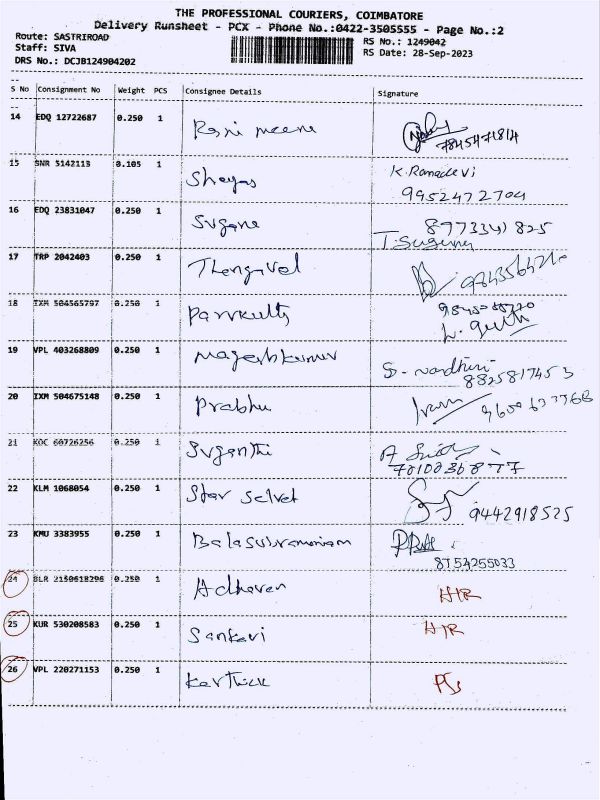 THE PROFESSIONAL COURIERS, COIMBATORE
Delivery Runsheet - PCX - Phone No.:0422-3505555 - Page No.:2
Route: SASTRIROAD
RS No.: 1249042
Staff: SIVA
RS Date: 28-Sep-2023
DRS No.: DCJB124904202
S No Consignment No Weight PCS Consignee Details Signature
14 EDQ 12722687 0.250 1 Rani meena
15 SNR 5142113 0.105 1 Shayas K. Ramadevi
9952472704
16 EDQ 23831047 0.250 1 Sugane
17 TRP 2042403 0.250 1 Thangavel
18 IXM 504565797 0.250 1
19 VPL 403268809 0.250 1 Mageshkumar
8825817453
20 IXM 504675148 0.250 1 Prabhu
21 KOC 60726256 0.250 1 Suganthi
7010036877
22 KLM 1068054 0.250 1 Star Selvet
9442918525
23 KMU 3383955 0.250 1 Balasubramaniam
8754255033
24 BLR 2150618296 0.250 1 Adhavan
25 KUR 530208583 0.250 1 Sankavi
26 VPL 220271153 0.250 1 Karthick